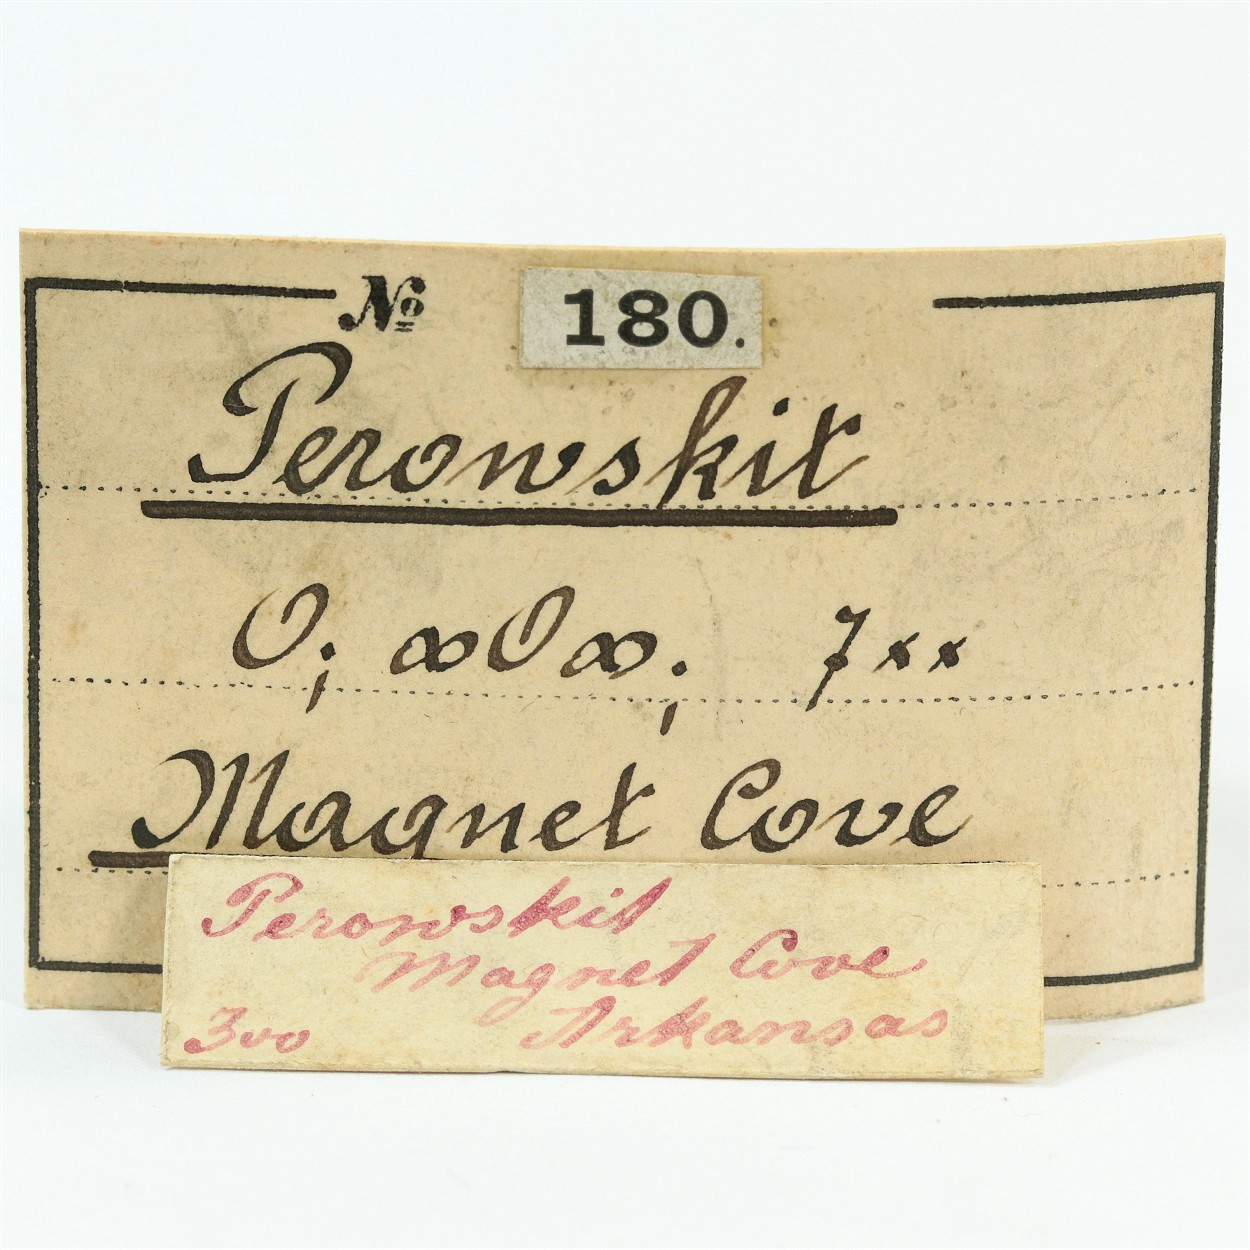 № 180.
Perowskit
O; ∞O∞; 7××
Magnet Cove
Perowskit
Magnet Cove
300 Arkansas